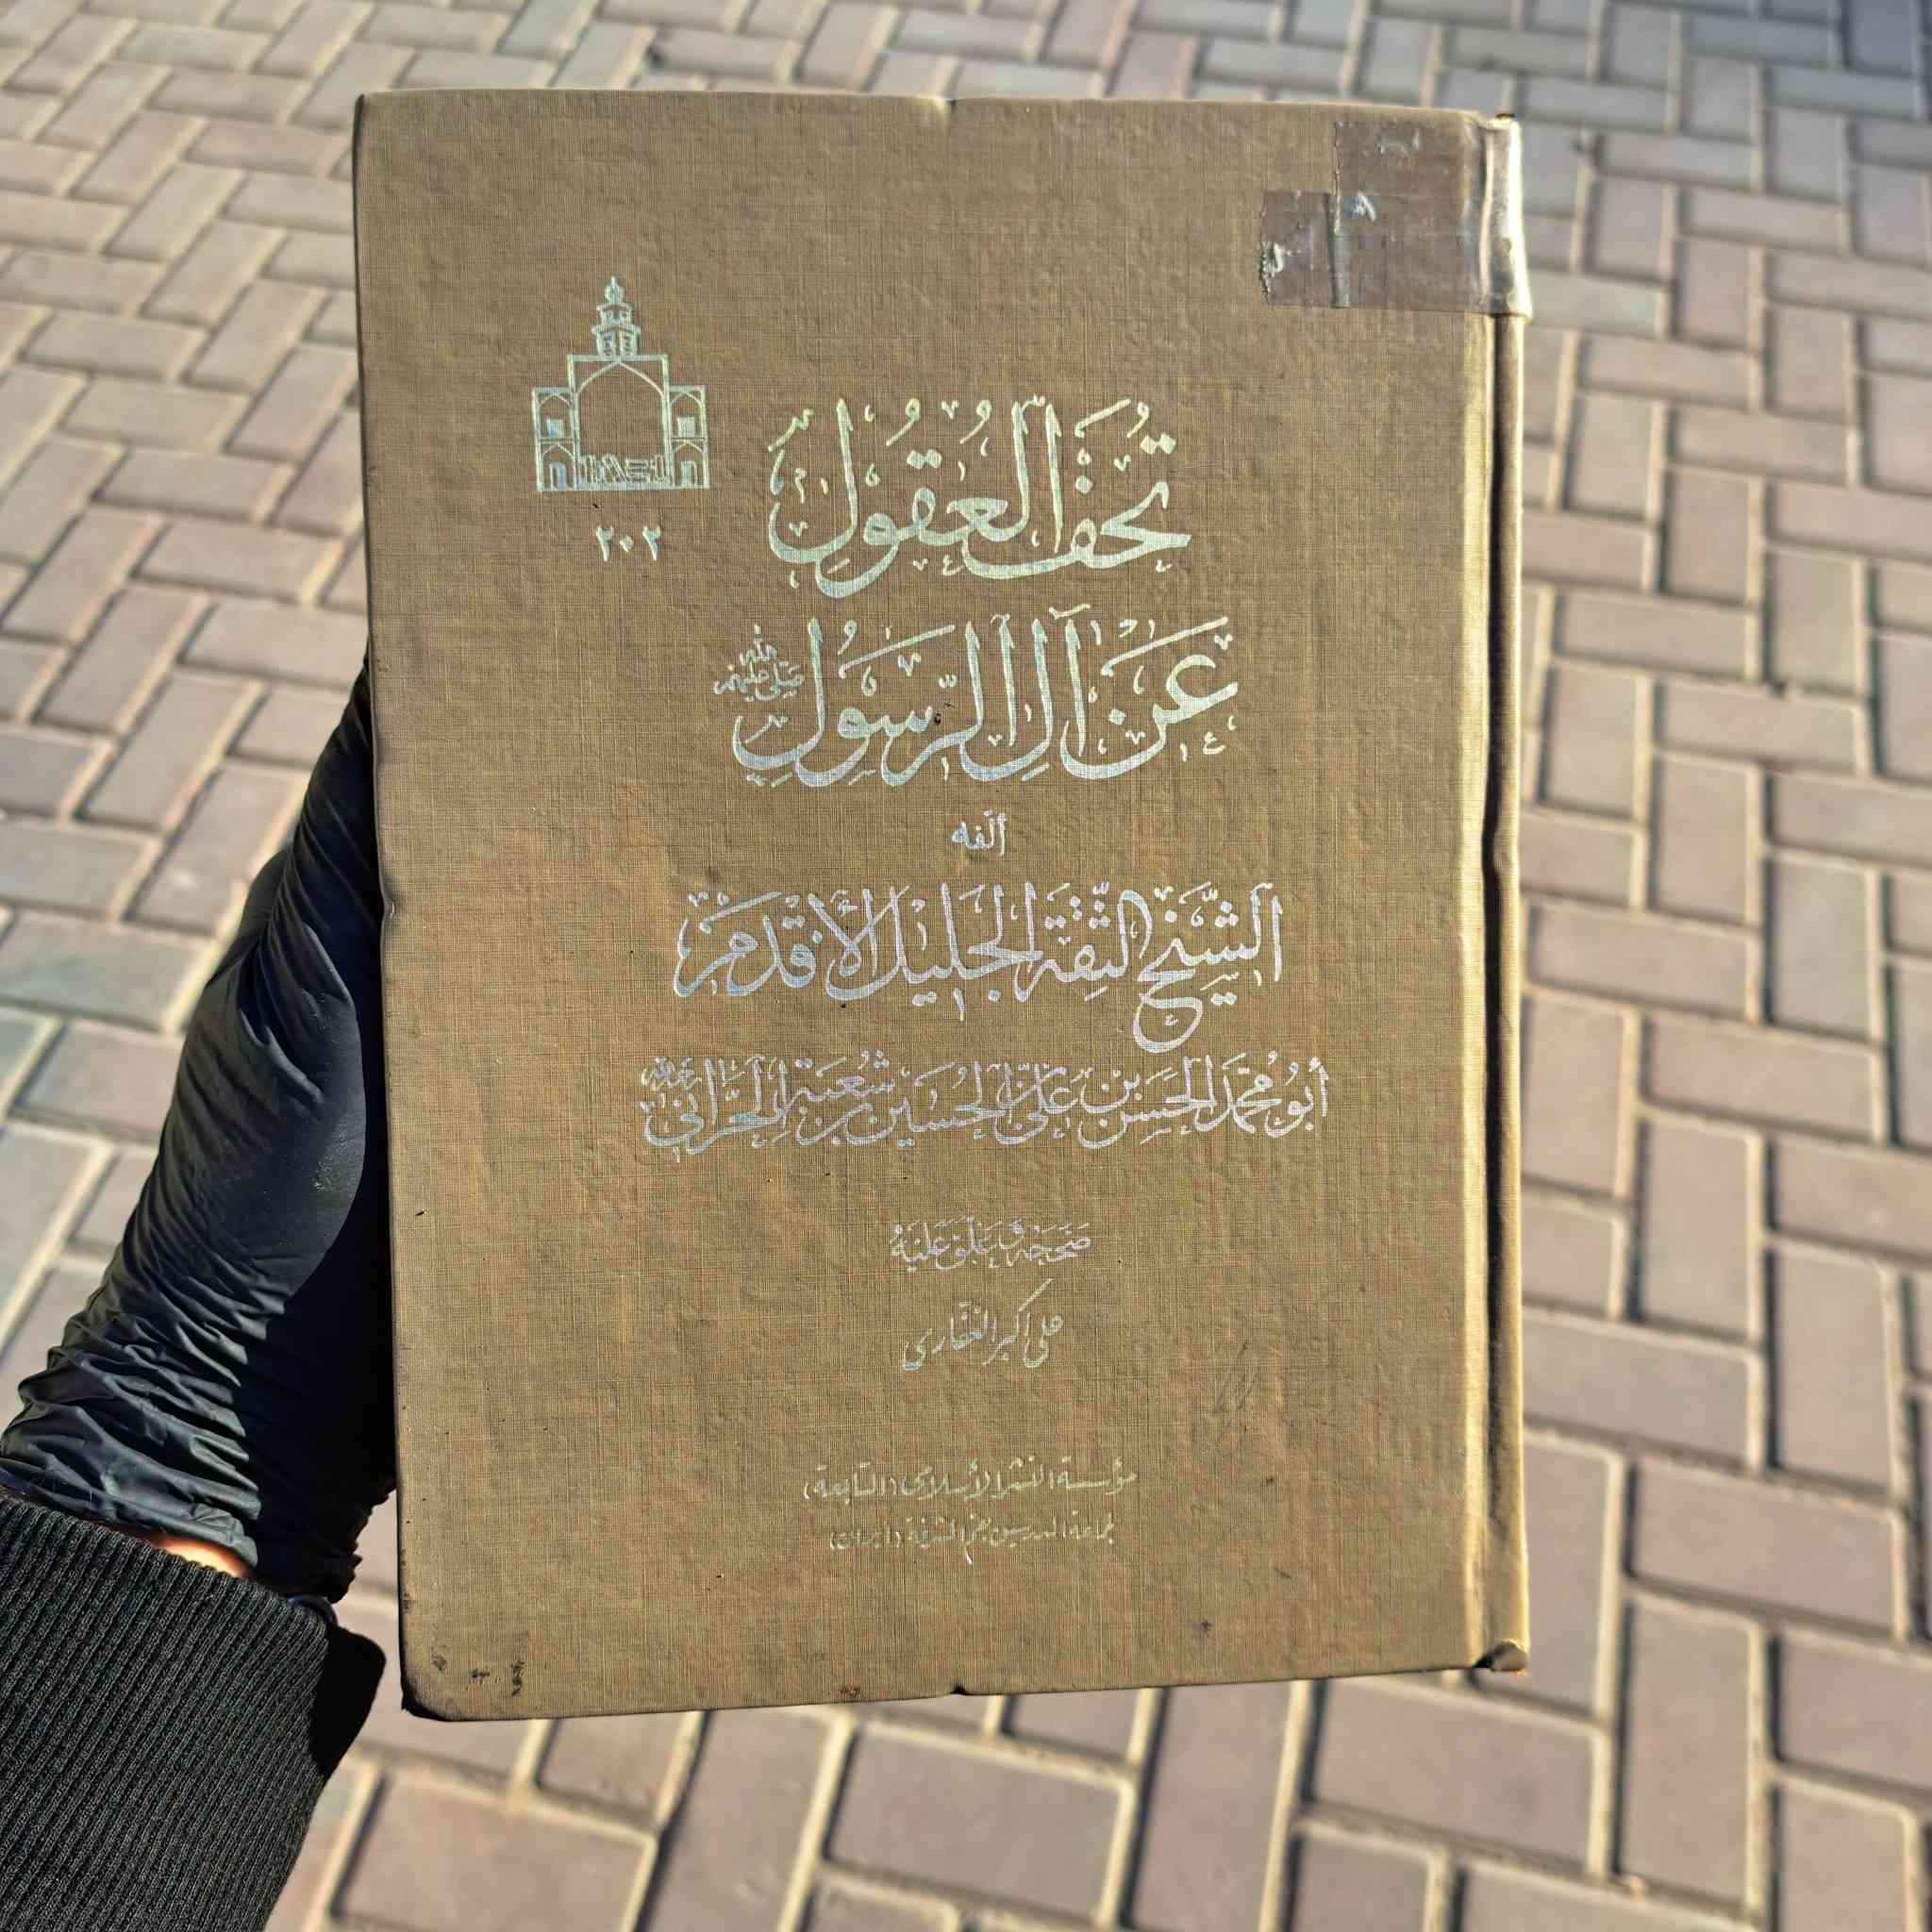 تُحَفُ العُقُولِ
٢٠٢
عَنْ آلِ الرَّسُولِ صلّى الله عليهم
ألّفه
الشَّيْخُ الثِّقَةُ الجَلِيلُ الأَقْدَمُ
أَبُو مُحَمَّدٍ الحَسَنُ بْنُ عَلِيِّ بْنِ الحُسَيْنِ بْنِ شُعْبَةَ الحَرَّانِيُّ
صَحَّحَهُ وَعَلَّقَ عَلَيْهِ
علی اکبر الغفاری
مؤسسة النشر الأسلامي (التابعة)
لجماعة المدرسين بقم المشرفة (ايران)